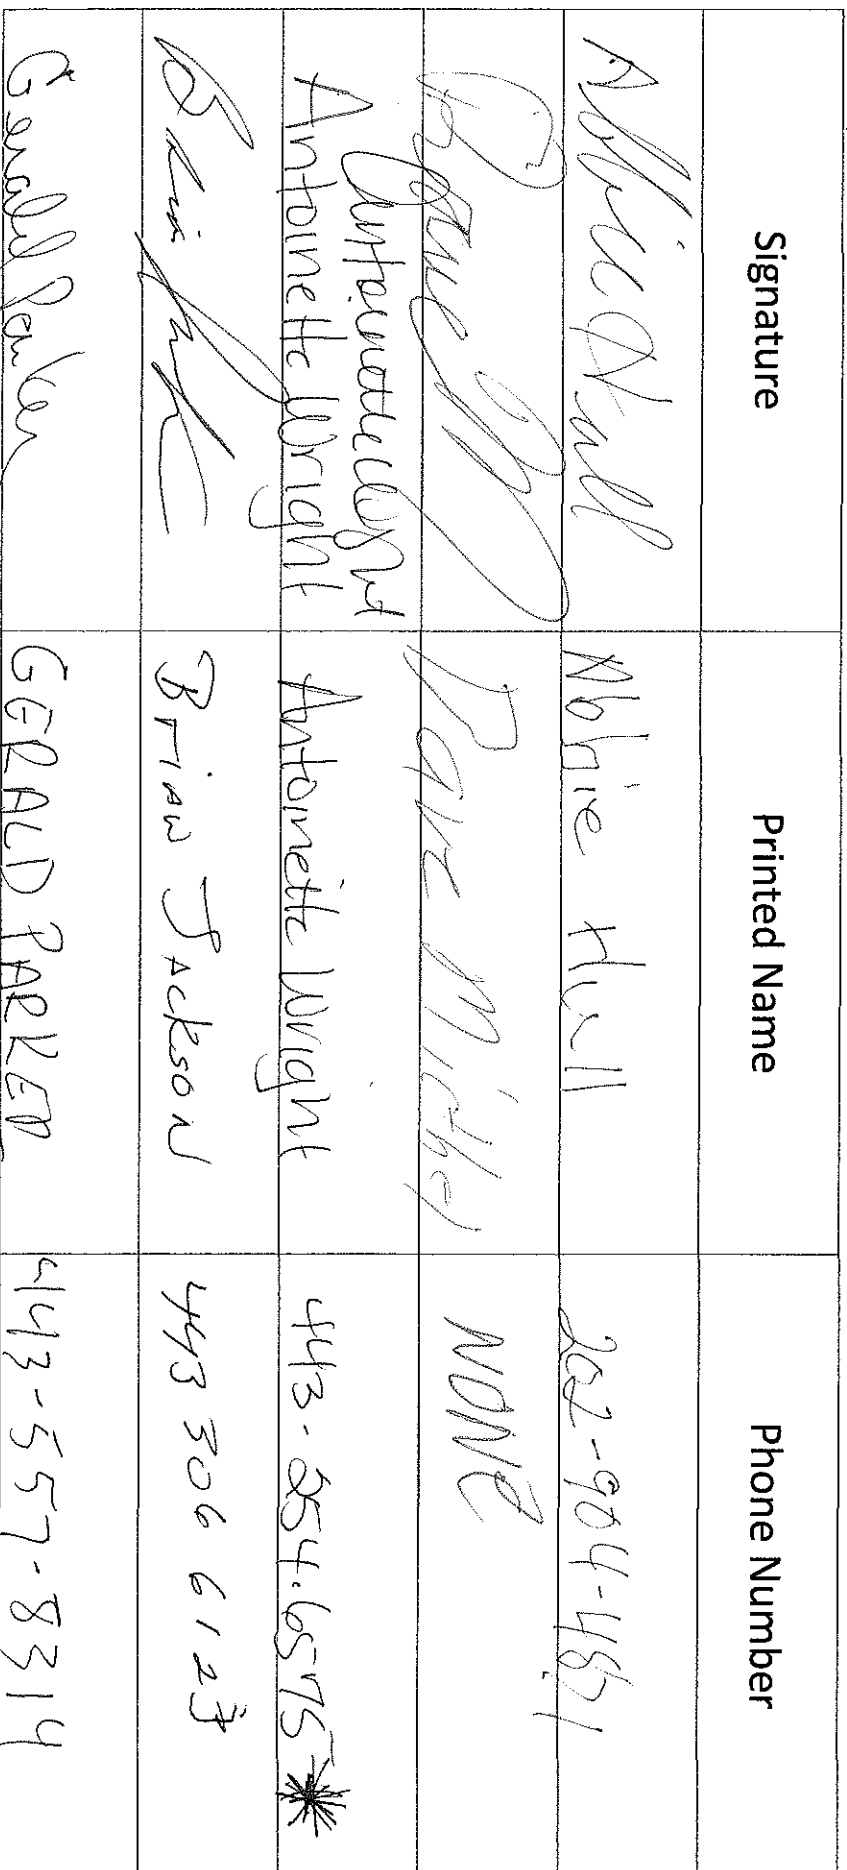 Signature Printed Name Phone Number
Abbie Hall Abbie Hall 202-904-4851
NONE
Antoinette Wright
Antoinette Wright Antoinette Wright 443-254-6575*
Brian Jackson 443 306 6123
Gerald Parker GERALD PARKER 443-557-8314